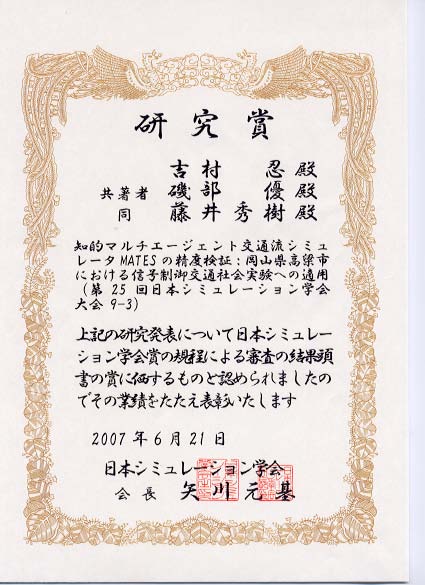 研究賞
吉村 忍殿
共著者 磯部 優殿
同 藤井秀樹殿
知的マルチエージェント交通流シミュ
レータMATESの精度検証:岡山県高梁市
における信号制御交通社会実験への適用
(第25回日本シミュレーション学会
大会 9-3)
上記の研究発表について日本シミュレー
ション学会賞の規程による審査の結果頭
書の賞に価するものと認められましたの
でその業績をたたえ表彰いたします
2007年6月21日
日本シミュレーション学会
会長 矢川元基